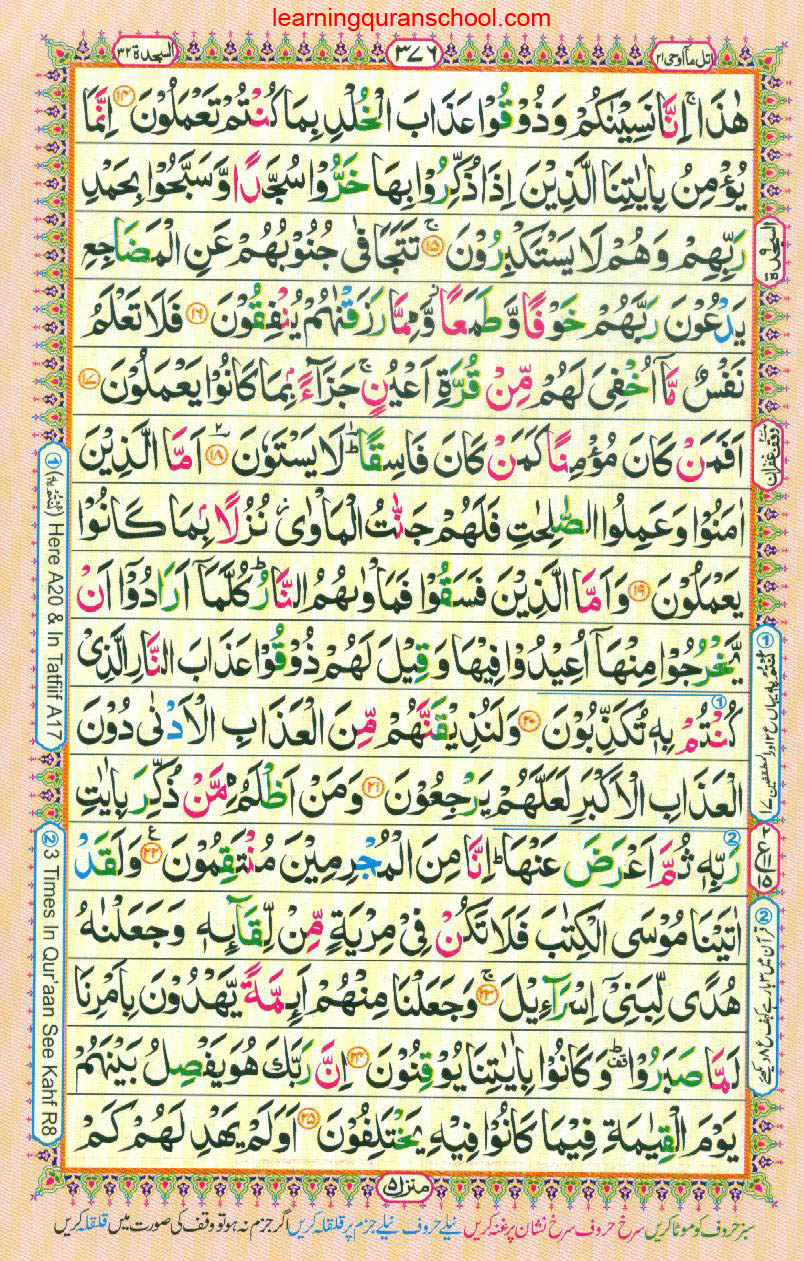 learningquranschool.com
السجدة ٣٢
٣٧٦
اتل ما اوحی ٢١
هٰذَا ۚ اِنَّا نَسِيْنٰكُمْ وَذُوْقُوْا عَذَابَ الْخُلْدِ بِمَا كُنْتُمْ تَعْمَلُوْنَ ١٤ اِنَّمَا
يُؤْمِنُ بِاٰيٰتِنَا الَّذِيْنَ اِذَا ذُكِّرُوْا بِهَا خَرُّوْا سُجَّدًا وَّسَبَّحُوْا بِحَمْدِ
رَبِّهِمْ وَهُمْ لَا يَسْتَكْبِرُوْنَ ١٥ تَتَجَافٰى جُنُوْبُهُمْ عَنِ الْمَضَاجِعِ
يَدْعُوْنَ رَبَّهُمْ خَوْفًا وَّطَمَعًا وَّمِمَّا رَزَقْنٰهُمْ يُنْفِقُوْنَ ١٦ فَلَا تَعْلَمُ
نَفْسٌ مَّآ اُخْفِيَ لَهُمْ مِّنْ قُرَّةِ اَعْيُنٍ ۚ جَزَآءًۢ بِمَا كَانُوْا يَعْمَلُوْنَ ١٧
اَفَمَنْ كَانَ مُؤْمِنًا كَمَنْ كَانَ فَاسِقًا ؕ لَا يَسْتَوٗنَ ١٨ اَمَّا الَّذِيْنَ
اٰمَنُوْا وَعَمِلُوا الصّٰلِحٰتِ فَلَهُمْ جَنّٰتُ الْمَاْوٰى ۡ نُزُلًاۢ بِمَا كَانُوْا
يَعْمَلُوْنَ ١٩ وَاَمَّا الَّذِيْنَ فَسَقُوْا فَمَاْوٰىهُمُ النَّارُ ؕ كُلَّمَآ اَرَادُوْٓا اَنْ
يَّخْرُجُوْا مِنْهَآ اُعِيْدُوْا فِيْهَا وَقِيْلَ لَهُمْ ذُوْقُوْا عَذَابَ النَّارِ الَّذِيْ
كُنْتُمْ بِهٖ تُكَذِّبُوْنَ ٢٠ وَلَنُذِيْقَنَّهُمْ مِّنَ الْعَذَابِ الْاَدْنٰى دُوْنَ
الْعَذَابِ الْاَكْبَرِ لَعَلَّهُمْ يَرْجِعُوْنَ ٢١ وَمَنْ اَظْلَمُ مِمَّنْ ذُكِّرَ بِاٰيٰتِ
رَبِّهٖ ثُمَّ اَعْرَضَ عَنْهَا ؕ اِنَّا مِنَ الْمُجْرِمِيْنَ مُنْتَقِمُوْنَ ٢٢ وَلَقَدْ
اٰتَيْنَا مُوْسَى الْكِتٰبَ فَلَا تَكُنْ فِيْ مِرْيَةٍ مِّنْ لِّقَآئِهٖ وَجَعَلْنٰهُ
هُدًى لِّبَنِيْٓ اِسْرَآءِيْلَ ٢٣ وَجَعَلْنَا مِنْهُمْ اَئِمَّةً يَّهْدُوْنَ بِاَمْرِنَا
لَمَّا صَبَرُوْا ؕ وَكَانُوْا بِاٰيٰتِنَا يُوْقِنُوْنَ ٢٤ اِنَّ رَبَّكَ هُوَ يَفْصِلُ بَيْنَهُمْ
يَوْمَ الْقِيٰمَةِ فِيْمَا كَانُوْا فِيْهِ يَخْتَلِفُوْنَ ٢٥ اَوَلَمْ يَهْدِ لَهُمْ كَمْ
السجدة
وقف غفران
① Here A20 & In Tatfiif A17
② 3 Times In Qur'aan See Kahf R8
منزل ٥
سبز حروف کو موٹا کریں سرخ حروف سرخ نشان پر غنہ کریں نیلے حروف نیلے جزم پر قلقلہ کریں اگر جزم نہ ہو تو وقف کی صورت میں قلقلہ کریں